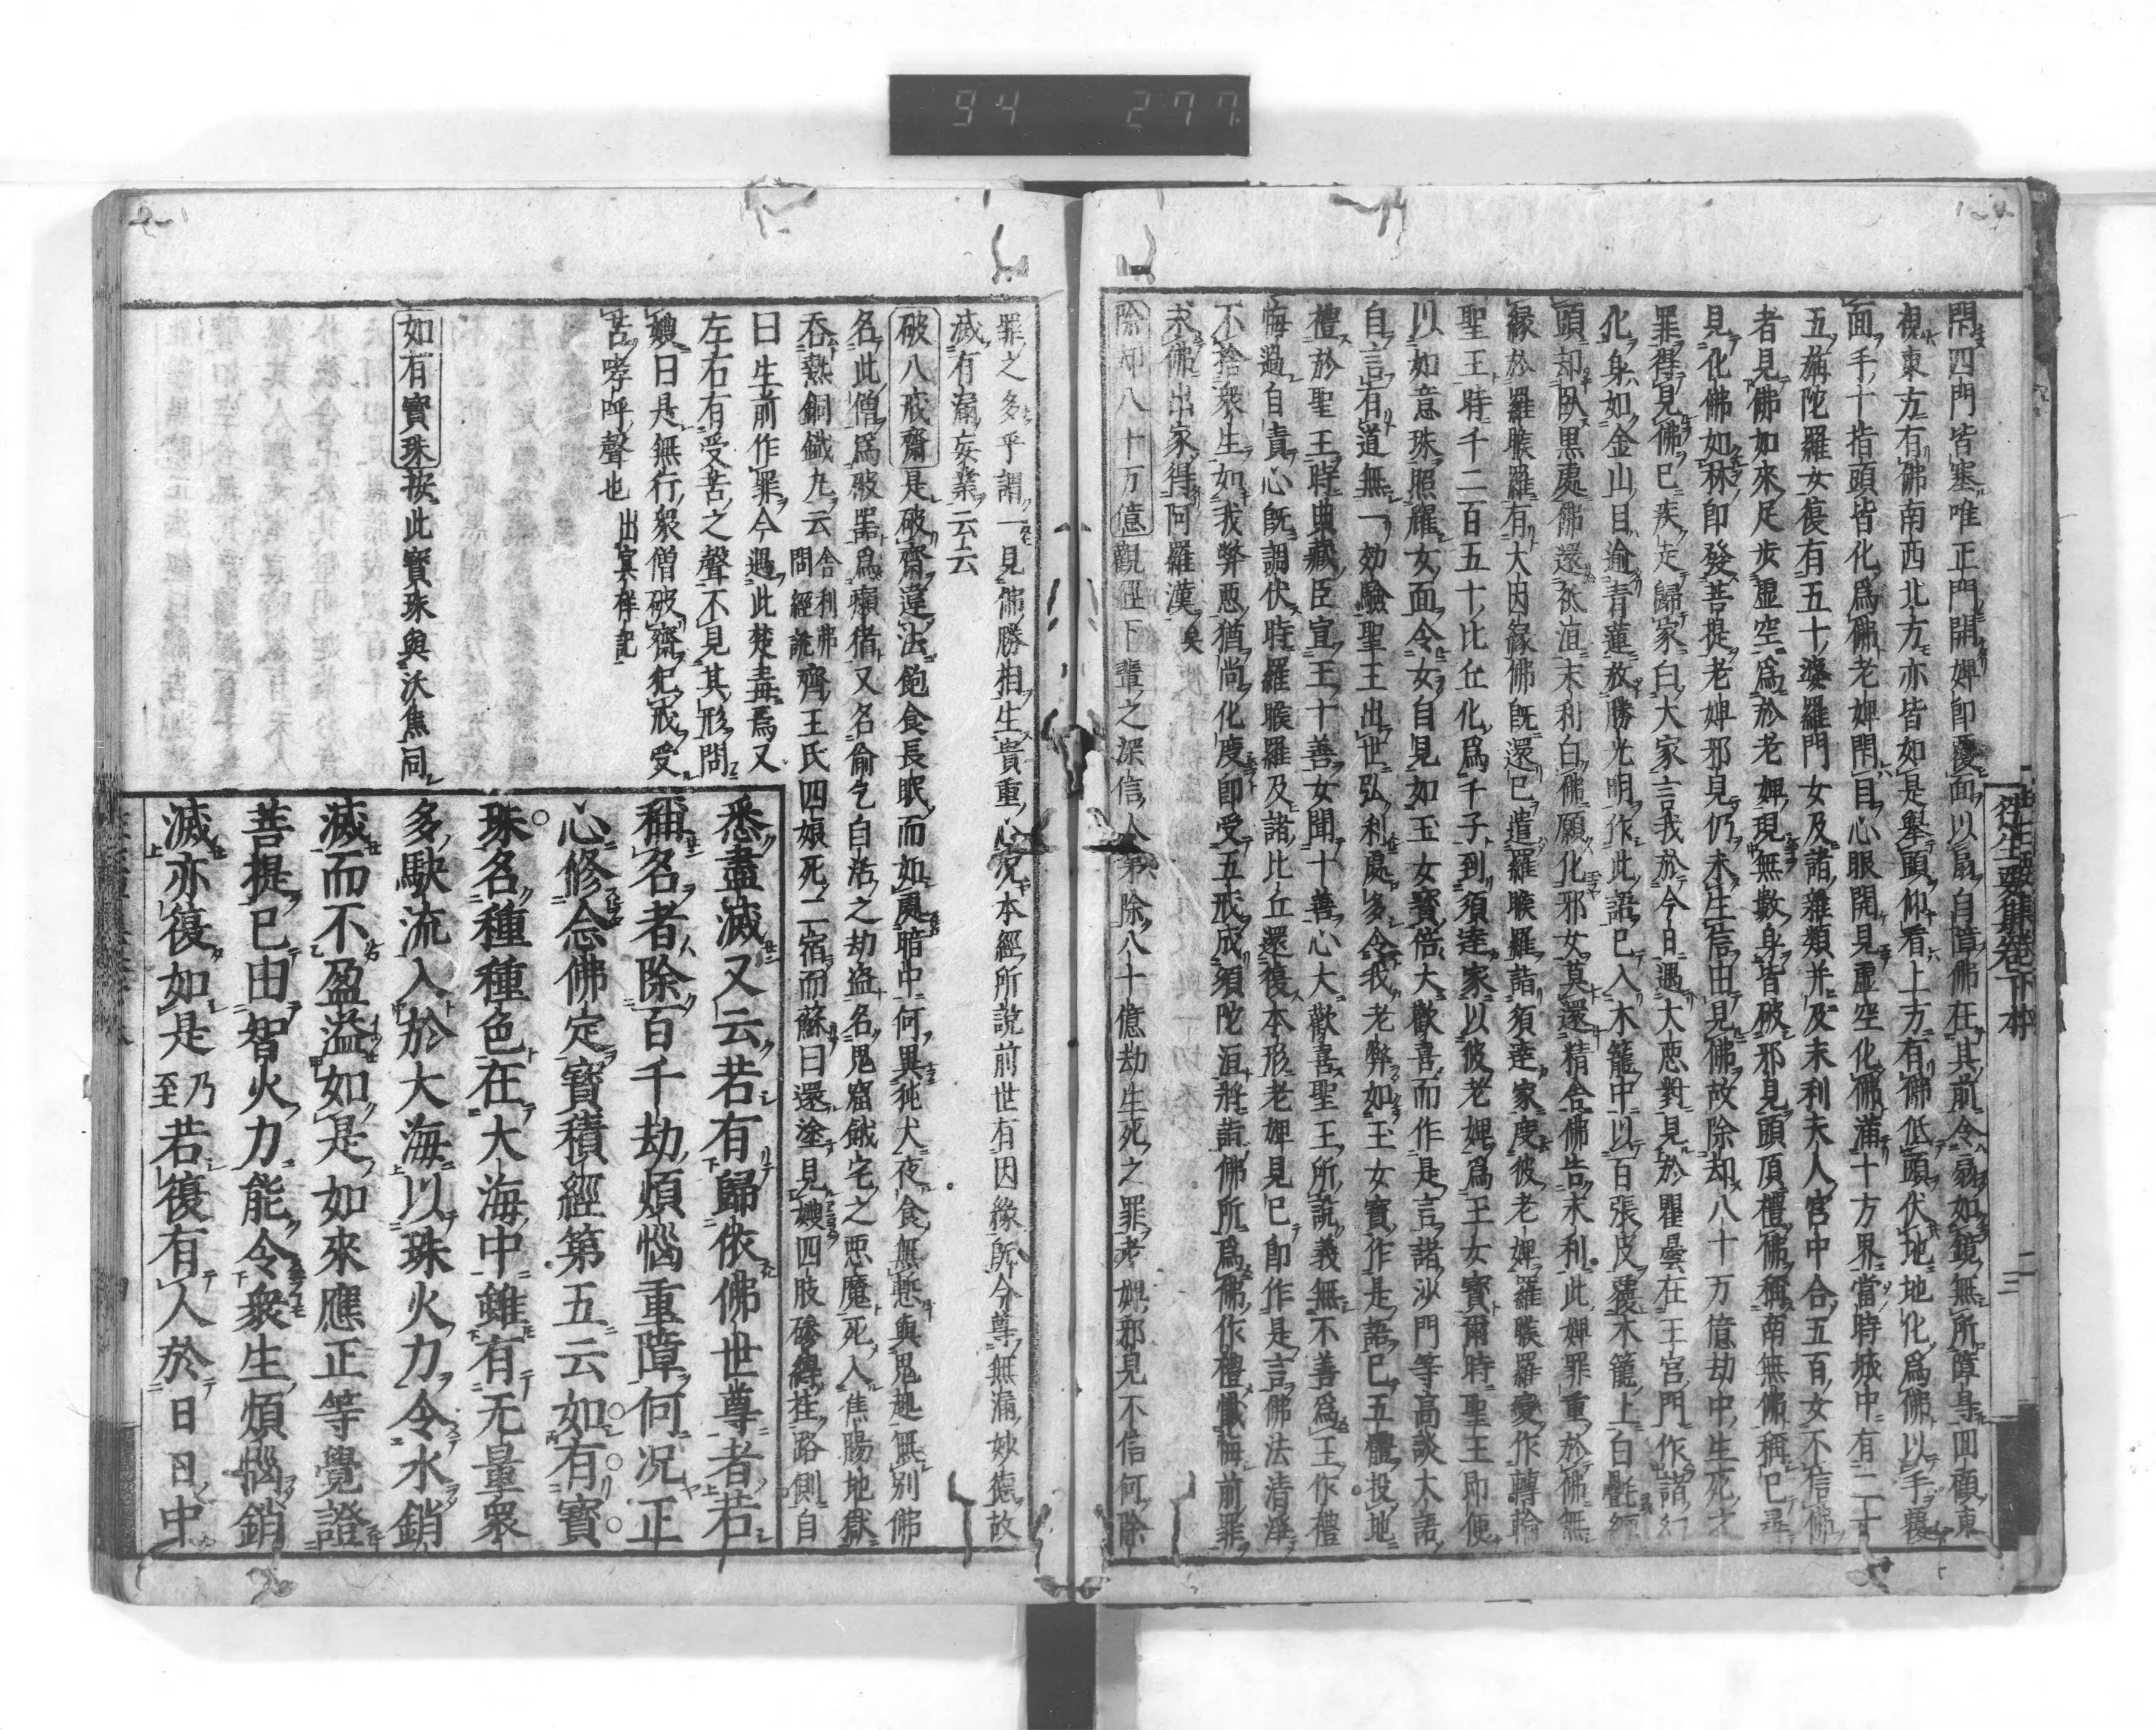 94 277
往生要集卷下本
二三
閇四門皆塞唯正門開婢卽覆面以扇自障佛在其前令扇如鏡無所障身囬顧東
視東方有佛南西北方亦皆如是舉頭仰看上方有佛低頭伏地地化爲佛以手覆
面手十指頭皆化爲佛老婢閇目心眼開見虛空化佛滿十方界當時城中有二十
五旃陀羅女復有五十婆羅門女及諸雜類并及末利夫人宮中合五百女不信佛
者見佛如來足步虛空爲於老婢現無數身皆破邪見頭頂禮佛稱南無佛稱已尋
見化佛如林卽發菩提老婢邪見仍未生信由見佛故除却八十万億劫中生死之
罪得見佛已疾走歸家白大家言我於今日遇大惡對見於瞿曇在王宮門作諸幻
化身如金山目逾青蓮放勝光明作此語已入木籠中以百張皮覆木籠上白㲲纒
頭却臥黑處佛還祇洹末利白佛願化邪女莫還精舍佛告末利此婢罪重於佛無
緣於羅睺羅有大因緣佛旣還已遣羅睺羅詣須達家度彼老婢羅睺羅變作轉輪
聖王時千二百五十比丘化爲千子到須達家以彼老婢爲王女寶爾時聖王卽便
以如意珠照耀女面令女自見如玉女寶倍大歡喜而作是言諸沙門等高談大語
自言有道無一効驗聖王出世弘利處多令我老弊如玉女寶作是語已五體投地
禮於聖王時典藏臣宣王十善女聞十善心大歡喜聖王所說義無不善爲王作禮
悔過自責心旣調伏時羅睺羅及諸比丘還復本形老婢見已卽作是言佛法清淨
不捨衆生如我弊惡猶尚化度卽受五戒成須陀洹將詣佛所爲佛作禮懺悔前罪
求佛出家得阿羅漢矣
除却八十万億觀經下輩之深信人第除八十億劫生死之罪老婢邪見不信何除
罪之多乎謂一見佛勝相生貴重心况本經所說前世有因緣所令尊無漏妙德故
滅有漏妄業云云
破八戒齋是破齋違法飽食長眠而如處暗中何異狗犬夜食無慙與鬼趣無別佛
名此僧爲破器爲癩猪又名偷乞自活之劫盜名鬼窟餓宅之惡魔死入焦腸地獄
呑熱銅鐵丸云舍利佛問經說齊王氏四娘死二宿而蘇曰還塗見嫂四肢磣縛在路側自
曰生前作罪今遇此焚毒焉又
左右有受苦之聲不見其形問
嫂曰是無行衆僧破齋犯戒受
苦哮呼聲也出冥祥記
如有寶珠按此寶珠與沃焦同
悉盡滅又云若有歸依佛世尊者若
稱名者除百千劫煩惱重障何况正
心修念佛定寶積經第五云如有寶
珠名種種色在大海中雖有无量衆
多駃流入於大海以珠火力令水銷
滅而不盈溢如是如來應正等覺證
菩提已由智火力能令衆生煩惱銷
滅亦復如是乃至若復有人於日日中